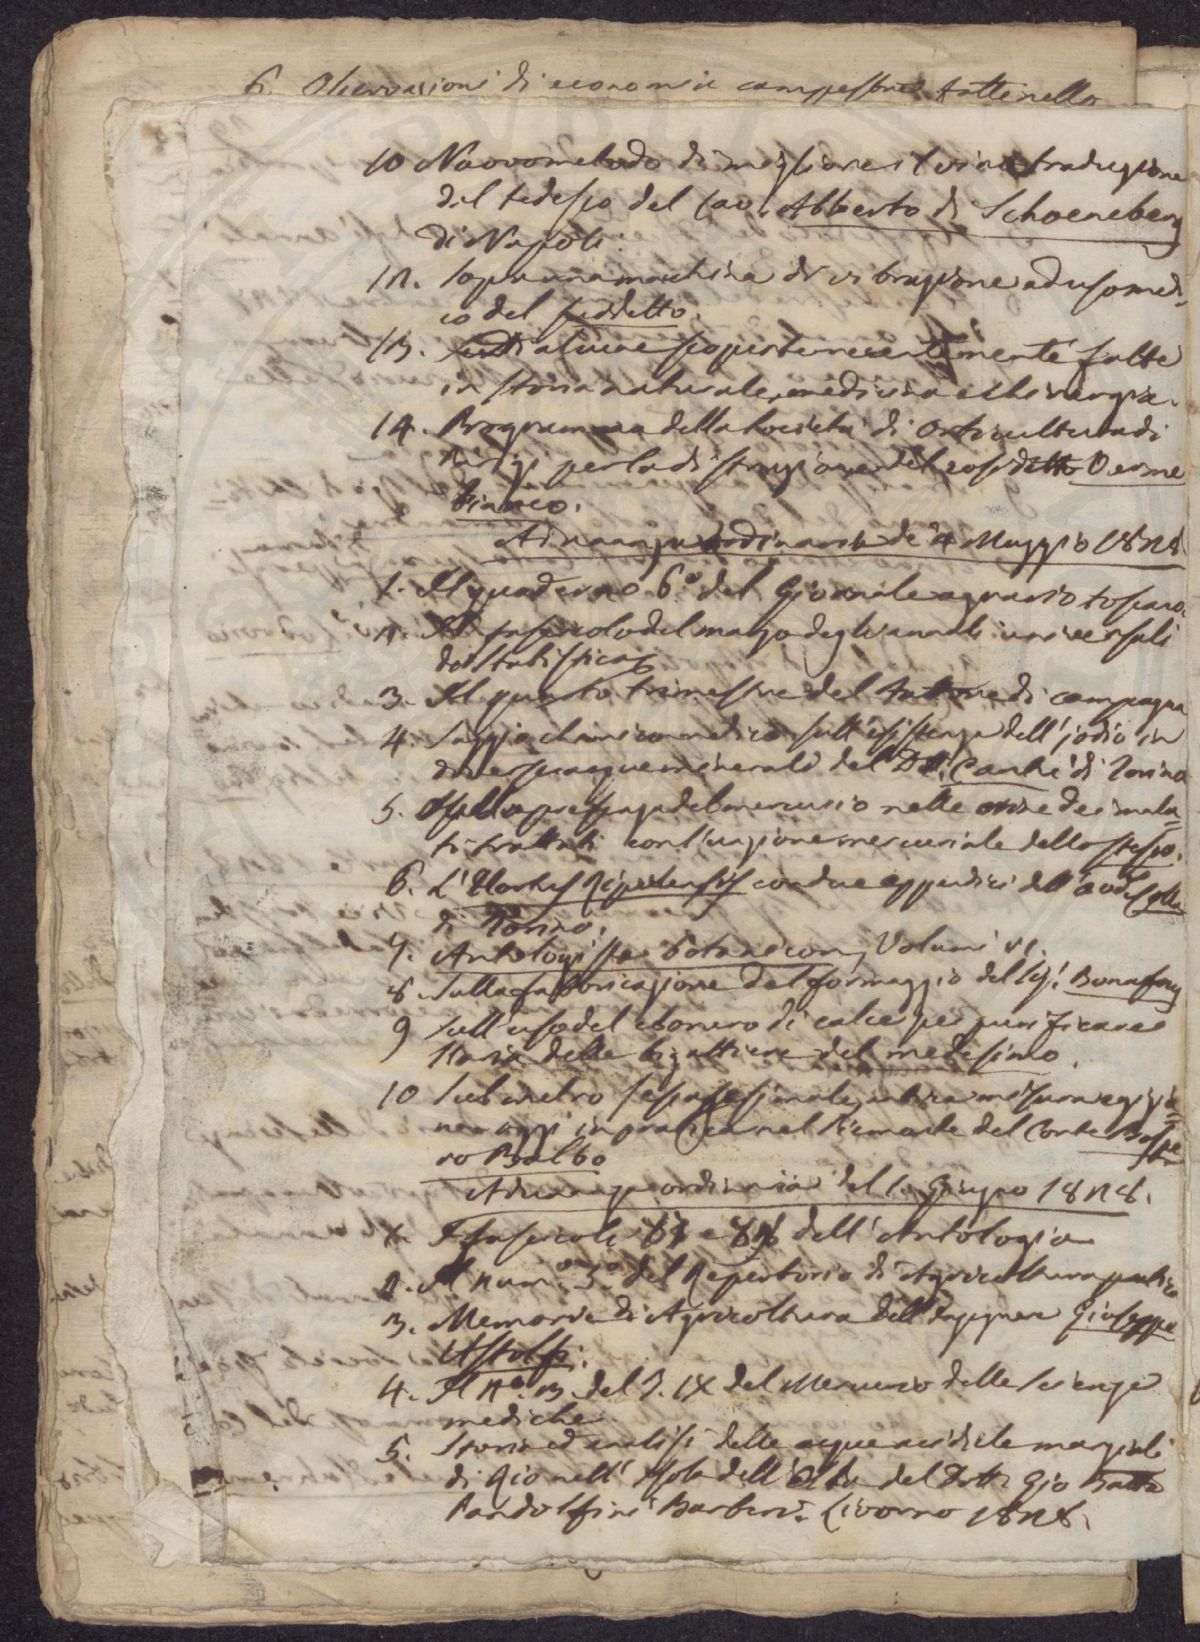 6. Osservazioni di economia campestre Fattinello
10 Nuovo metodo di migliorare il vino traduzione
del tedesco del Cav. Alberto di Schoeneberg
di Napoli.
12. Sopra una macchina di vibrazione ad uso medi-
co del suddetto.
13. Sulle alcune scoperte recentemente fatte
in storia naturale, medicina e chirurgia.
14. Programma della Società di Orticultura di
Parigi per la distruzione del così detto Verme
bianco.
Adunanza ordinaria de' 4 Maggio 1828
1. Il quaderno 6.º del Giornale agrario toscano.
2. Il fascicolo del marzo degli annali universali
di Statistica
3. Il quarto trimestre del Fattore di campagna
4. Saggio chimico medico sull'esistenza dell'jodio in
diverse acque minerali del Dr. Cantù di Torino
5. Sulla presenza del mercurio nelle orine dei mala-
ti trattati coll'unzione mercuriale dello stesso.
6. L'Hortus Ripulensis con due appendici del Prof. Colla
di Torino.
7. Antologista botanicon, Volumi VI.
8. Sulla fabbricazione del formaggio del Sig. Bonafous
9 Sull'uso del cloruro di calce per purificare
l'aria delle bigattiere del medesimo.
10 Sul metro sessagesimale, antica misura egizia-
ne oggi in pratica nel Piemonte del Conte Prospe-
ro Balbo
Adunanza ordinaria del 1º Giugno 1828.
1. I fascicoli 87 e 88 dell'Antologia
2. Il num.º 5º del Repertorio di Agricoltura pratica
3. Memorie di Agricoltura dell'Ingegnere Giuseppe
Astolfi.
4. Il Nº. 23 del T. IX del Mercurio delle Scienze
mediche
5. Storia ed analisi delle acque acidule marziali
di Rio nell'isola dell'Elba del Dott. Gio Batta
Pandolfini Barberi. Livorno 1828.